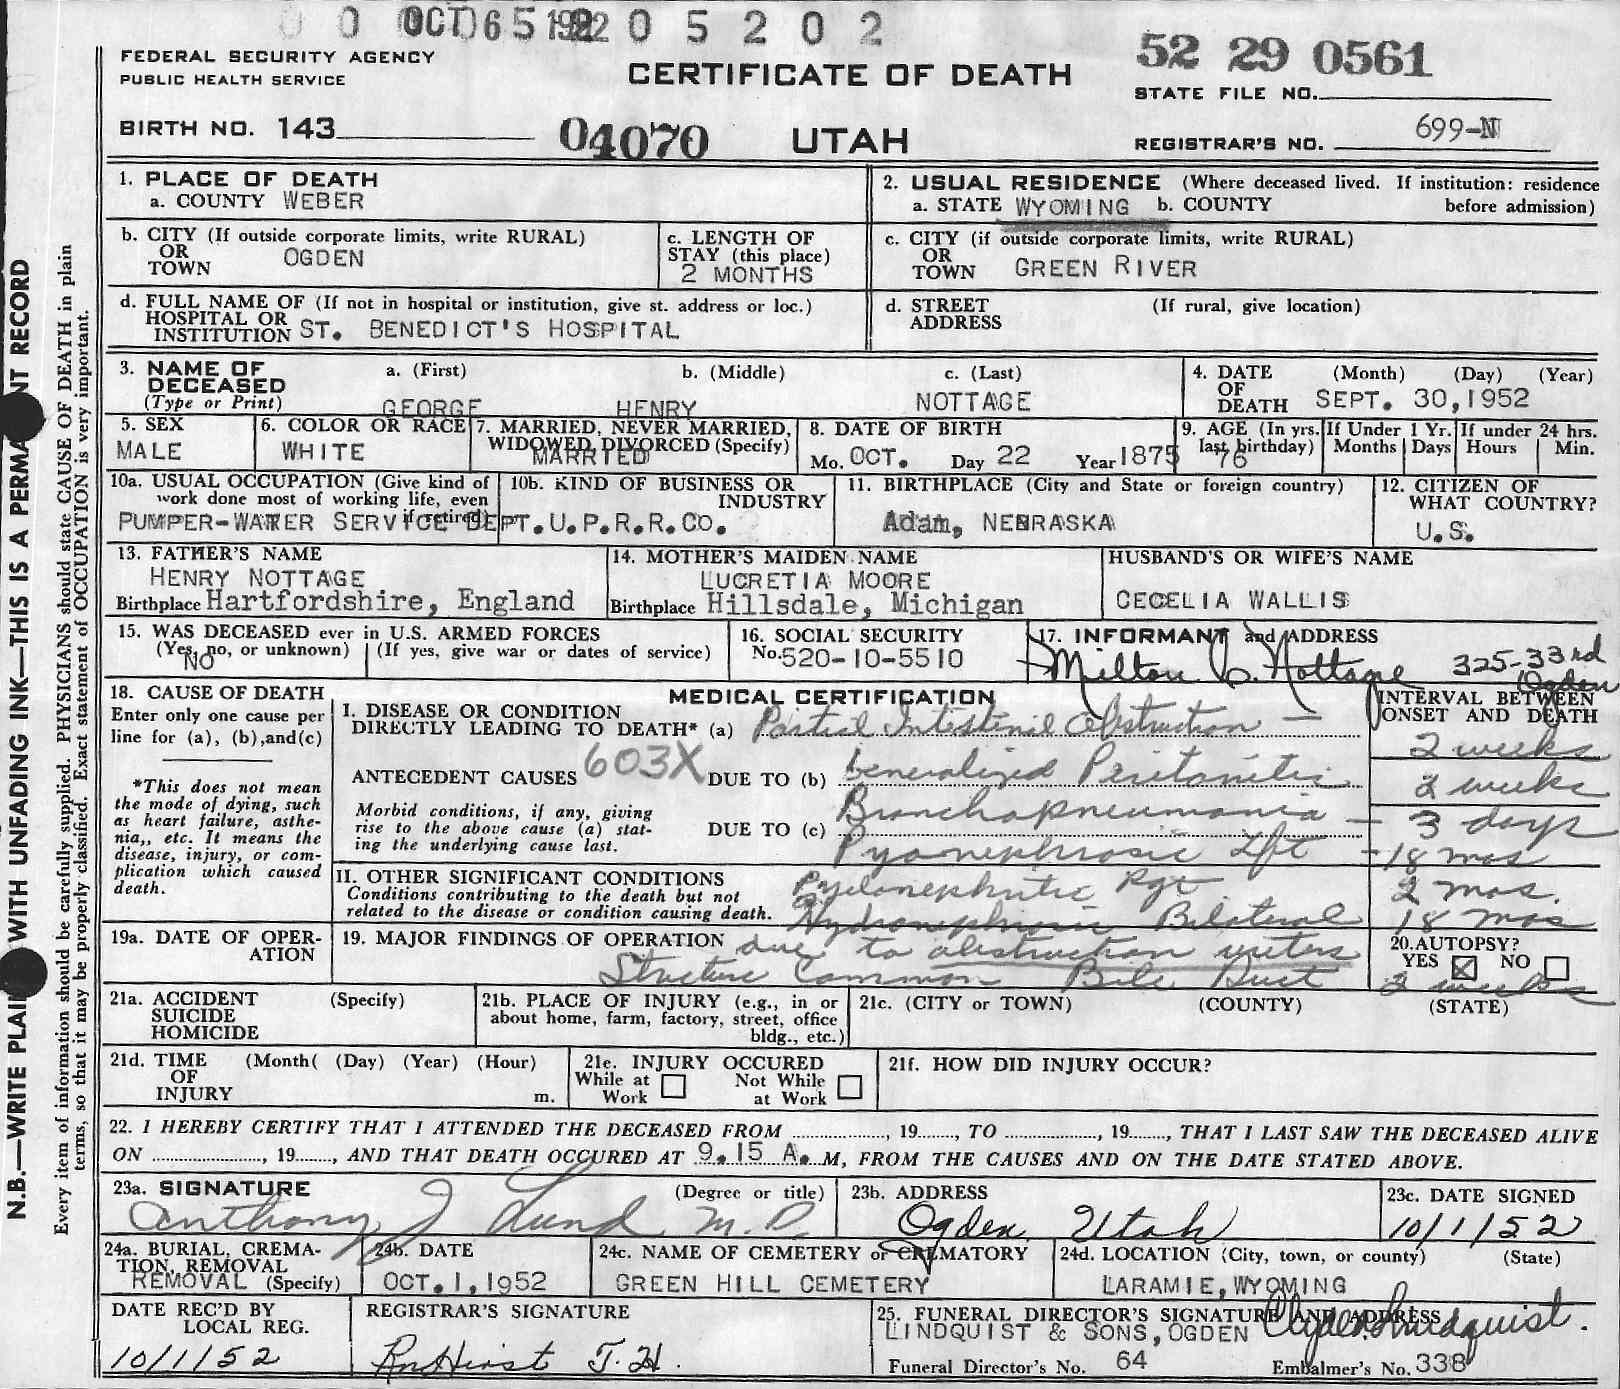 0 0 OCT 6 1952 0 5 2 0 2
FEDERAL SECURITY AGENCY
PUBLIC HEALTH SERVICE
CERTIFICATE OF DEATH
52 29 0561
STATE FILE NO.
BIRTH NO. 143
04070
UTAH
REGISTRAR'S NO. 699-N
1. PLACE OF DEATH
a. COUNTY WEBER
2. USUAL RESIDENCE (Where deceased lived. If institution: residence before admission)
a. STATE WYOMING b. COUNTY
b. CITY (If outside corporate limits, write RURAL)
OR
TOWN OGDEN
c. LENGTH OF
STAY (this place)
2 MONTHS
c. CITY (if outside corporate limits, write RURAL)
OR
TOWN GREEN RIVER
d. FULL NAME OF (If not in hospital or institution, give st. address or loc.)
HOSPITAL OR
INSTITUTION ST. BENEDICT'S HOSPITAL
d. STREET (If rural, give location)
ADDRESS
3. NAME OF
DECEASED
(Type or Print)
a. (First) b. (Middle) c. (Last)
GEORGE HENRY NOTTAGE
4. DATE (Month) (Day) (Year)
OF
DEATH SEPT. 30,1952
5. SEX
MALE
6. COLOR OR RACE
WHITE
7. MARRIED, NEVER MARRIED,
WIDOWED, DIVORCED (Specify)
MARRIED
8. DATE OF BIRTH
Mo. OCT. Day 22 Year 1875
9. AGE (In yrs.
last birthday)
76
If Under 1 Yr.
Months Days
If under 24 hrs.
Hours Min.
10a. USUAL OCCUPATION (Give kind of
work done most of working life, even
if retired)
PUMPER-WATER SERVICE DEPT.
10b. KIND OF BUSINESS OR
INDUSTRY
U.P.R.R.CO.
11. BIRTHPLACE (City and State or foreign country)
Adam, NEBRASKA
12. CITIZEN OF
WHAT COUNTRY?
U.S.
13. FATHER'S NAME
HENRY NOTTAGE
Birthplace Hartfordshire, England
14. MOTHER'S MAIDEN NAME
LUCRETIA MOORE
Birthplace Hillsdale, Michigan
HUSBAND'S OR WIFE'S NAME
CECELIA WALLIS
15. WAS DECEASED ever in U.S. ARMED FORCES
(Yes, no, or unknown) (If yes, give war or dates of service)
NO
16. SOCIAL SECURITY
No. 520-10-5510
17. INFORMANT and ADDRESS
Milton C. Nottage 325-33rd
Ogden
18. CAUSE OF DEATH
Enter only one cause per
line for (a), (b),and(c)
*This does not mean
the mode of dying, such
as heart failure, asthe-
nia,, etc. It means the
disease, injury, or com-
plication which caused
death.
MEDICAL CERTIFICATION
INTERVAL BETWEEN
ONSET AND DEATH
I. DISEASE OR CONDITION
DIRECTLY LEADING TO DEATH* (a) Partial Intestinal Obstruction – 2 weeks
ANTECEDENT CAUSES 603X DUE TO (b) Generalized Peritonitis 2 weeks
Morbid conditions, if any, giving
rise to the above cause (a) stat-
ing the underlying cause last.
DUE TO (c) Bronchopneumonia – 3 days
Pyonephrosis Lft – 18 mos
II. OTHER SIGNIFICANT CONDITIONS
Conditions contributing to the death but not
related to the disease or condition causing death.
Pyelonephritis Rgt 2 mos.
Hydronephrosis Bilateral 18 mos
19a. DATE OF OPER-
ATION
19. MAJOR FINDINGS OF OPERATION due to obstruction ureters
Stricture Common Bile Duct 2 weeks
20. AUTOPSY?
YES ☒ NO ☐
21a. ACCIDENT (Specify)
SUICIDE
HOMICIDE
21b. PLACE OF INJURY (e.g., in or
about home, farm, factory, street, office
bldg., etc.)
21c. (CITY or TOWN) (COUNTY) (STATE)
21d. TIME (Month( (Day) (Year) (Hour)
OF
INJURY m.
21e. INJURY OCCURED
While at Work ☐ Not While at Work ☐
21f. HOW DID INJURY OCCUR?
22. I HEREBY CERTIFY THAT I ATTENDED THE DECEASED FROM ..............., 19......., TO ..............., 19......., THAT I LAST SAW THE DECEASED ALIVE
ON ..............., 19......., AND THAT DEATH OCCURED AT 9.15 A. M, FROM THE CAUSES AND ON THE DATE STATED ABOVE.
23a. SIGNATURE (Degree or title)
Anthony J Lund M.D.
23b. ADDRESS
Ogden, Utah
23c. DATE SIGNED
10/1/52
24a. BURIAL, CREMA-
TION, REMOVAL
REMOVAL (Specify)
24b. DATE
OCT.1,1952
24c. NAME OF CEMETERY or CREMATORY
GREEN HILL CEMETERY
24d. LOCATION (City, town, or county) (State)
LARAMIE,WYOMING
DATE REC'D BY
LOCAL REG.
10/1/52
REGISTRAR'S SIGNATURE
25. FUNERAL DIRECTOR'S SIGNATURE AND ADDRESS
LINDQUIST & SONS,OGDEN Clyde Lindquist.
Funeral Director's No. 64 Embalmer's No. 338
N.B.—WRITE PLAINLY WITH UNFADING INK—THIS IS A PERMANENT RECORD
Every item of information should be carefully supplied. PHYSICIANS should state CAUSE OF DEATH in plain
terms, so that it may be properly classified. Exact statement of OCCUPATION is very important.